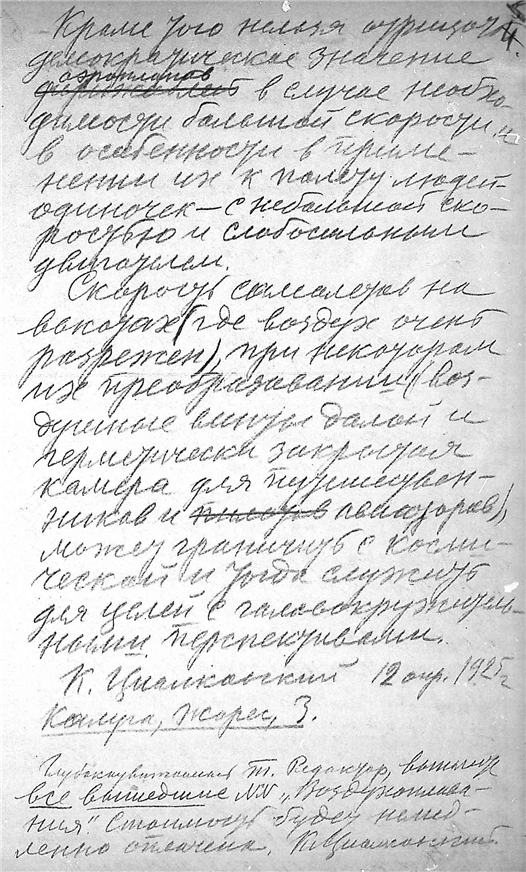 4
Кроме того нельзя отрицать
демократическое значение
аэропланов
дирижаблей в случае необхо-
димости большой скорости и
в особенности в приме-
нении их к полету людей-
одиночек — с небольшой ско-
ростью и слабосильным
двигателем.
Скорость самолетов на
высотах (где воздух очень
разрежен), при некотором
их преобразовании (воз-
душные винты долой и
герметически закрытая
камера для путешествен-
ников и пилотов авиаторов),
может граничить с косми-
ческой и тогда служить
для целей с головокружитель-
ными перспективами.
К. Циолковский 12 апр. 1925 г
Калуга, Жорес, 3.
Глубокоуважаемый т. Редактор, вышлите
все вышедшие NN „Воздухоплава-
ния". Стоимость будет немед-
ленно оплачена. К.Циолковский